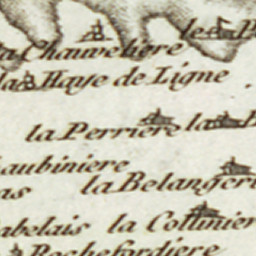 le P
la Chauveliere
la Haye de Ligne
la Perriere la B
aubiniere
as la Belangeri
abelais la Collinier
Rochefordiere